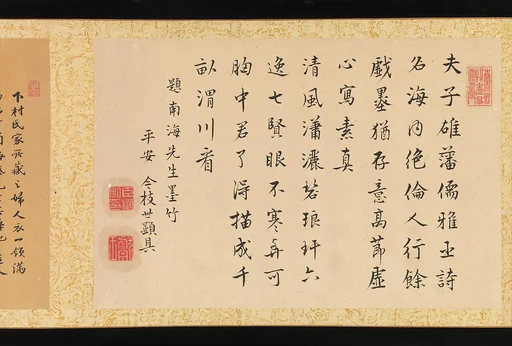 夫子雄藩儒雅亞詩
名海内絶倫人行餘
戲墨猶存意高節虚
心寫素真
清風瀟灑碧琅玕六
逸七賢眼不寒弄可
胸中君了得描成千
畝渭川看
題南海先生墨竹
平安 令枝世顯具
下村氏家所藏之婦人衣一領滿